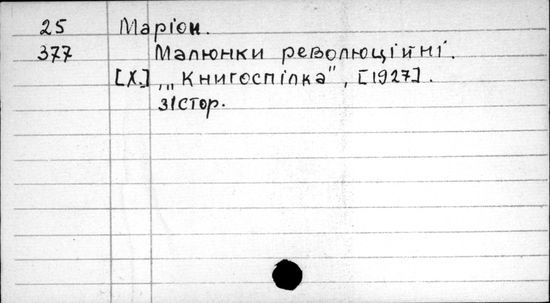 25 Маріон.
377 Малюнки революційні.
[Х.] „Книгоспілка", [1927].
3істор.